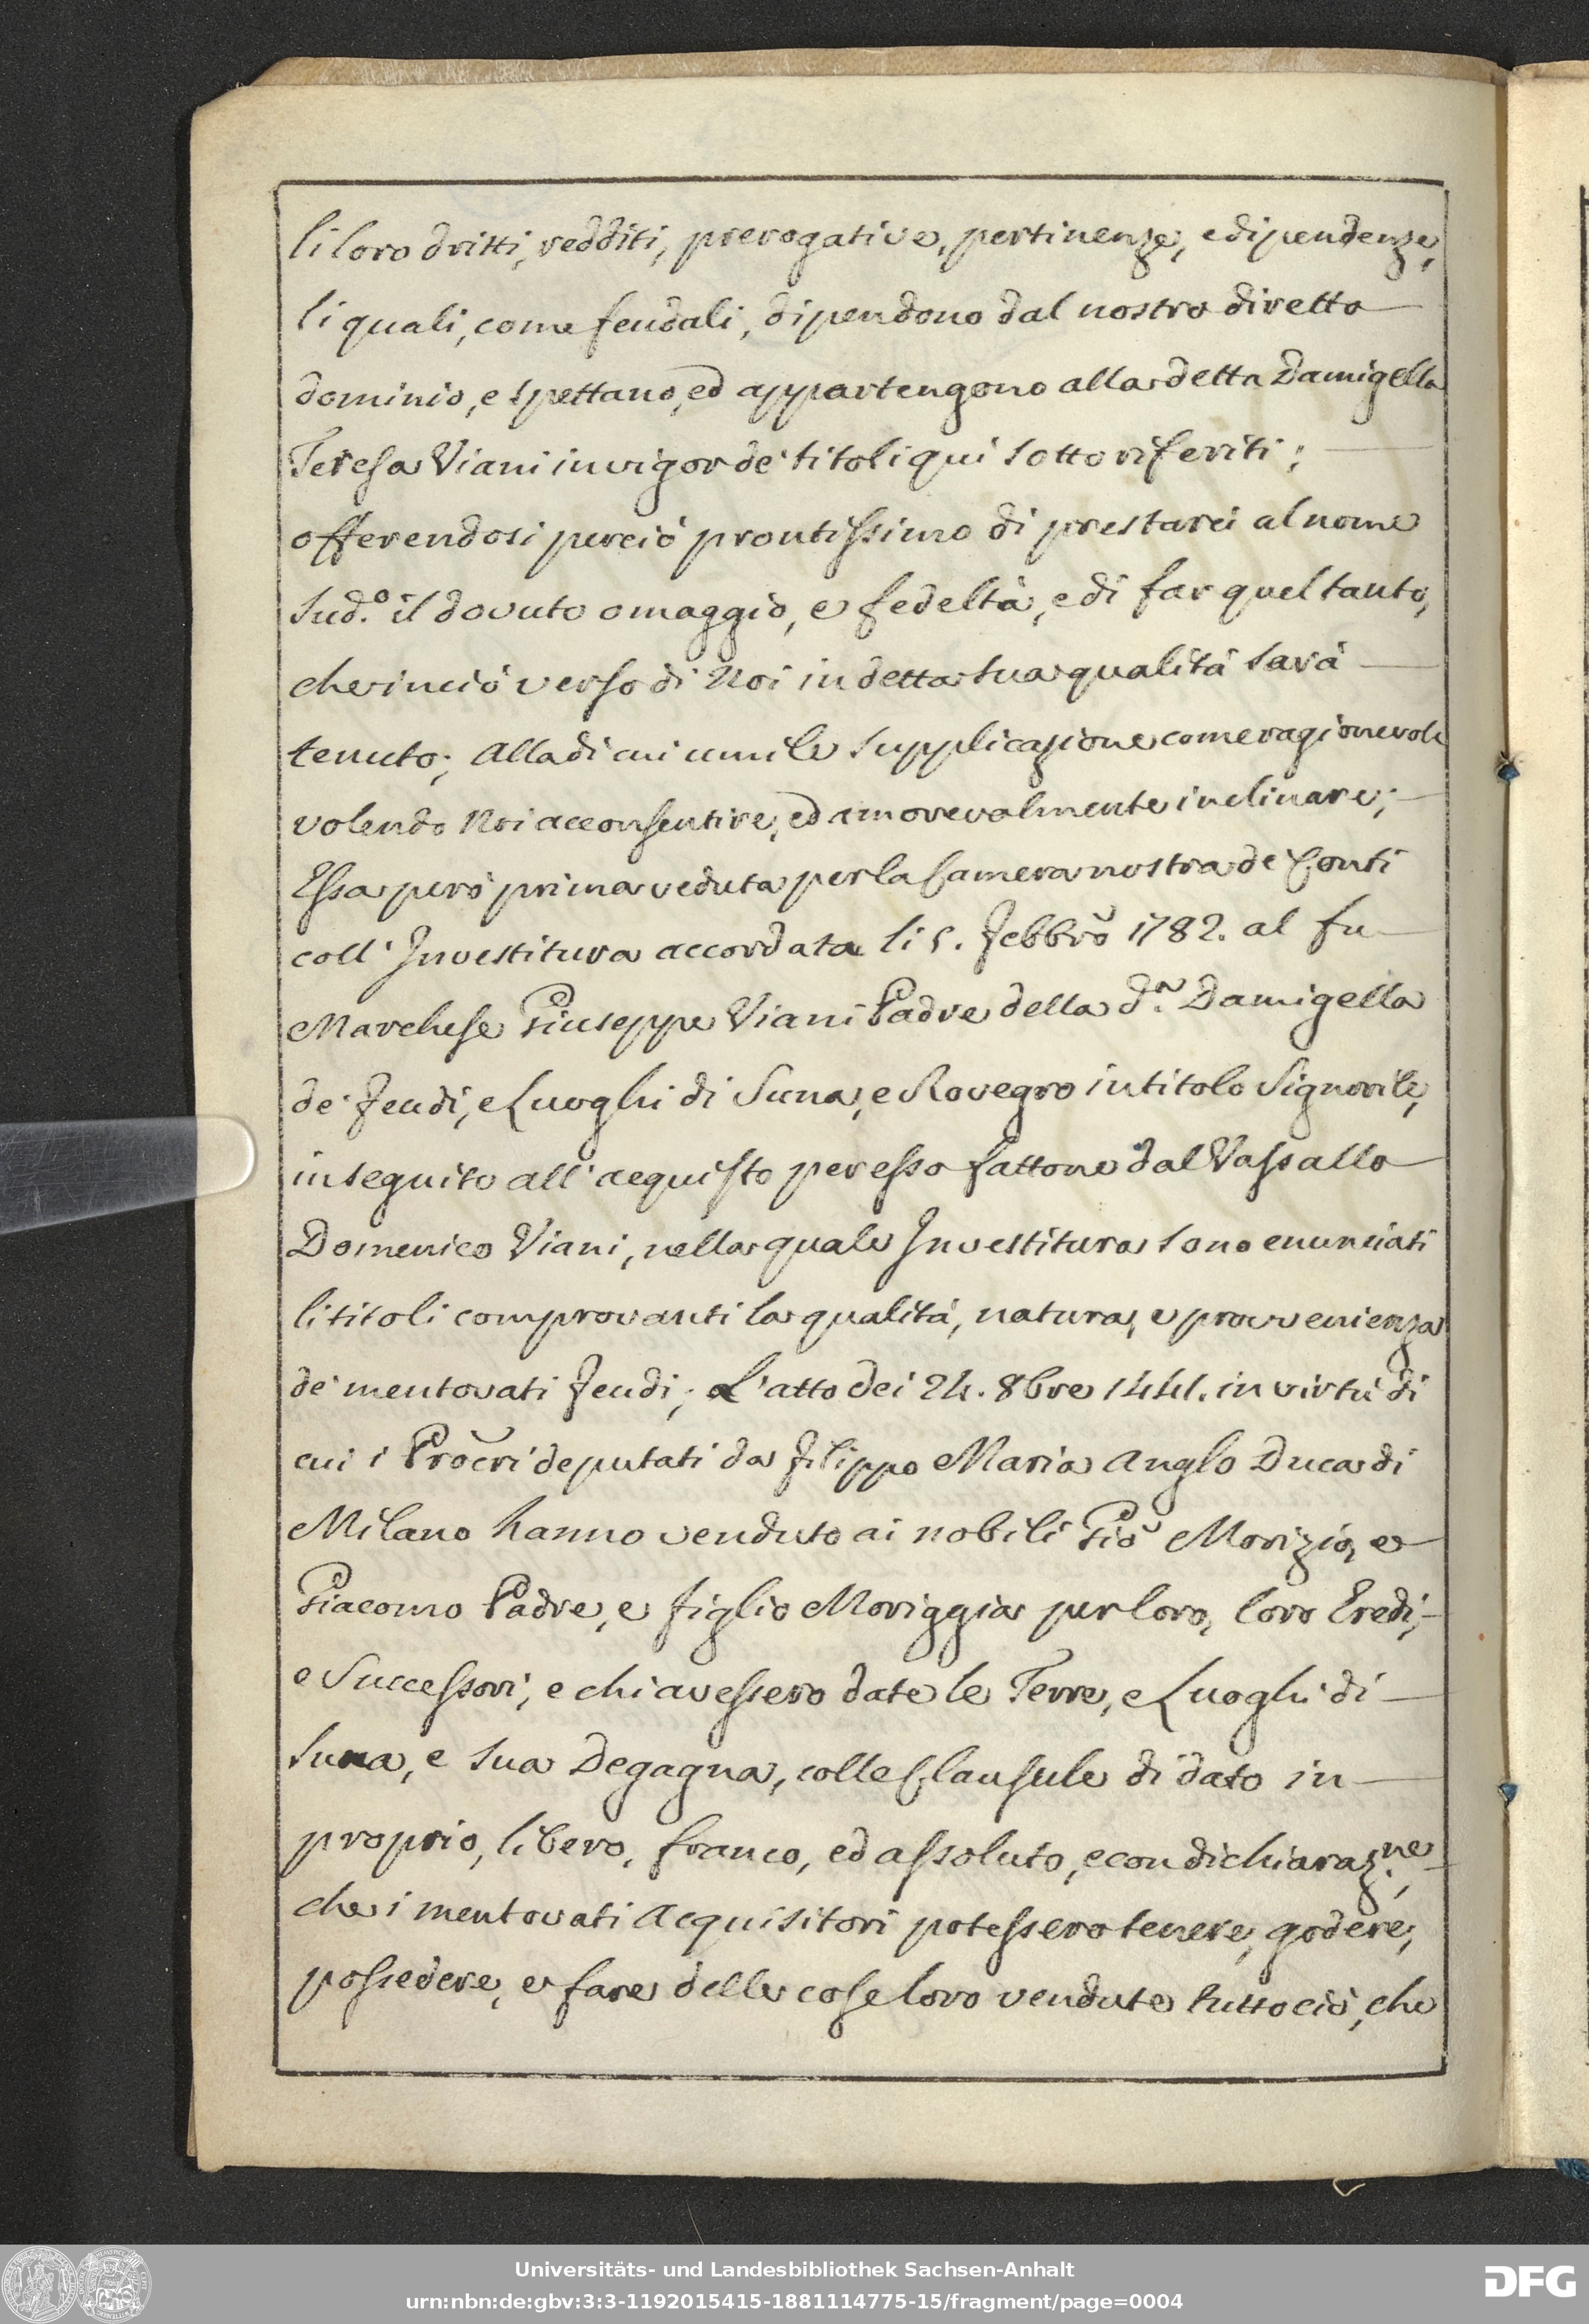 li loro dritti, redditi, prerogative, pertinenze, e dipendenze,
li quali, come feudali, dipendono dal nostro diretto
dominio, e spettano, ed appartengono alla detta Damigella
Teresa Viani in vigor de' titoli qui sotto riferiti;
offerendosi perciò prontissimo di prestarci al nome
sud.º il dovuto omaggio, e fedeltà, e di far quel tanto,
che in ciò verso di Noi in detta sua qualità sarà
tenuto; Alla di cui umile supplicazione come ragionevole
volendo Noi acconsentire, ed amorevolmente inclinare;
Essa però prima veduta per la Camera nostra de' Conti
coll' Investitura accordata li 5. Febbrõ 1782. al fu
Marchese Giuseppe Viani Padre della d.ª Damigella
de' Feudi, e Luoghi di Suna, e Rovegro in titolo Signorile,
in seguito all' acquisto per esso fattone dal Vassallo
Domenico Viani, nella quale Investitura sono enunciati
li titoli comprovanti la qualità, natura, e provvenienza
de' mentovati Feudi; L'atto dei 24. 8bre 1441. in virtù di
cui i Prõcri deputati da Filippo Maria Anglo Duca di
Milano hanno venduto ai nobili Giõ Morizio, e
Giacomo Padre, e figlio Moriggia per loro, loro Eredi,
e Successori, e chi avessero dato le Terre, e Luoghi di
Suna, e sua Degagna, colle Clausule di dato in
proprio, libero, franco, ed assoluto, e con dichiaraz.ne,
che i mentovati Acquisitori potessero tenere, godere,
possedere, e fare delle cose loro vendute tutto ciò, che
Universitäts- und Landesbibliothek Sachsen-Anhalt
urn:nbn:de:gbv:3:3-1192015415-1881114775-15/fragment/page=0004
DFG